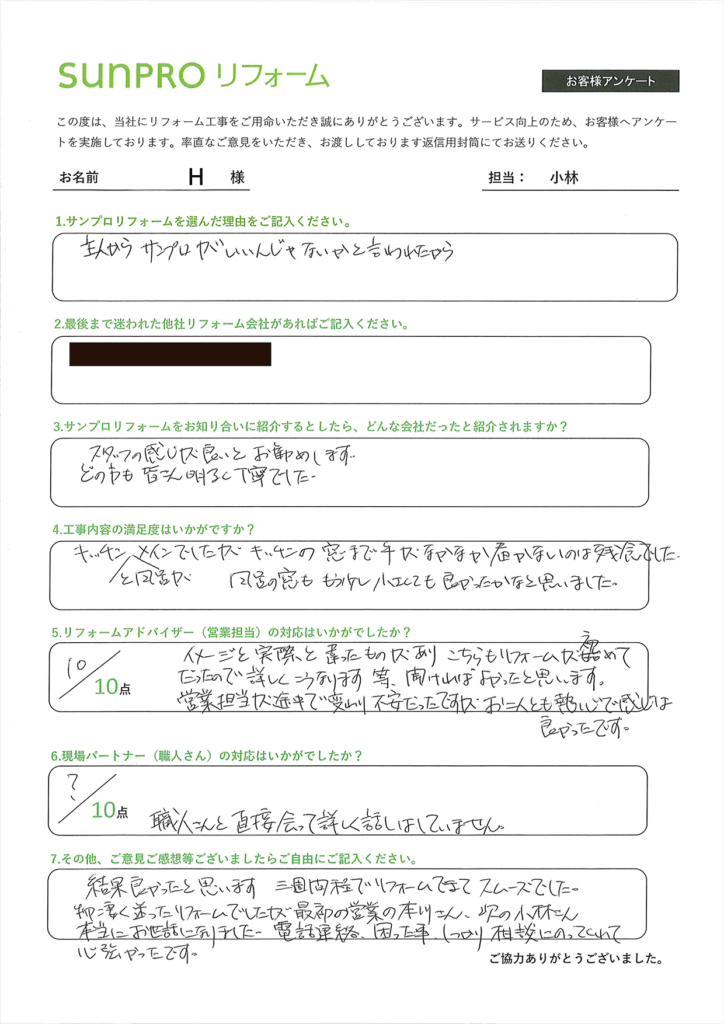 sunPRO リフォーム
お客様アンケート
この度は、当社にリフォーム工事をご用命いただき誠にありがとうございます。サービス向上のため、お客様へアンケー
トを実施しております。率直なご意見をいただき、お渡ししております返信用封筒にてお送りください。
お名前 H 様 担当： 小林
1.サンプロリフォームを選んだ理由をご記入ください。
主人から サンプロがいいんじゃないかと言われたから
2.最後まで迷われた他社リフォーム会社があればご記入ください。
3.サンプロリフォームをお知り合いに紹介するとしたら、どんな会社だったと紹介されますか？
スタッフの感じが良いと お勧めします
どの方も 皆さん明るく丁寧でした
4.工事内容の満足度はいかがですか？
キッチン メインでしたが キッチンの 窓まで手がなかなか届かないのは残念でした
と風呂が 風呂の窓も もう少し小さくても 良かったかなと思いました。
5.リフォームアドバイザー（営業担当）の対応はいかがでしたか？
10／10点
イメージと実際と違ったものがあり こちらもリフォームが初めて
だったので詳しくこうなります 等、聞ければよかったと思います。
営業担当が途中で変わり 不安だったですが お二人とも熱心で感じは
良かったです。
6.現場パートナー（職人さん）の対応はいかがでしたか？
?／10点
職人さんと直接会って詳しく話しはしていません。
7.その他、ご意見ご感想等ございましたらご自由にご記入ください。
結果良かったと思います 三週間程でリフォームできて スムーズでした。
迷ったリフォームでしたが 最初の営業の本川さん、次の小林さん
本当にお世話になりました 電話連絡、困った事、しっかり相談にのってくれて
心強かったです。
ご協力ありがとうございました。